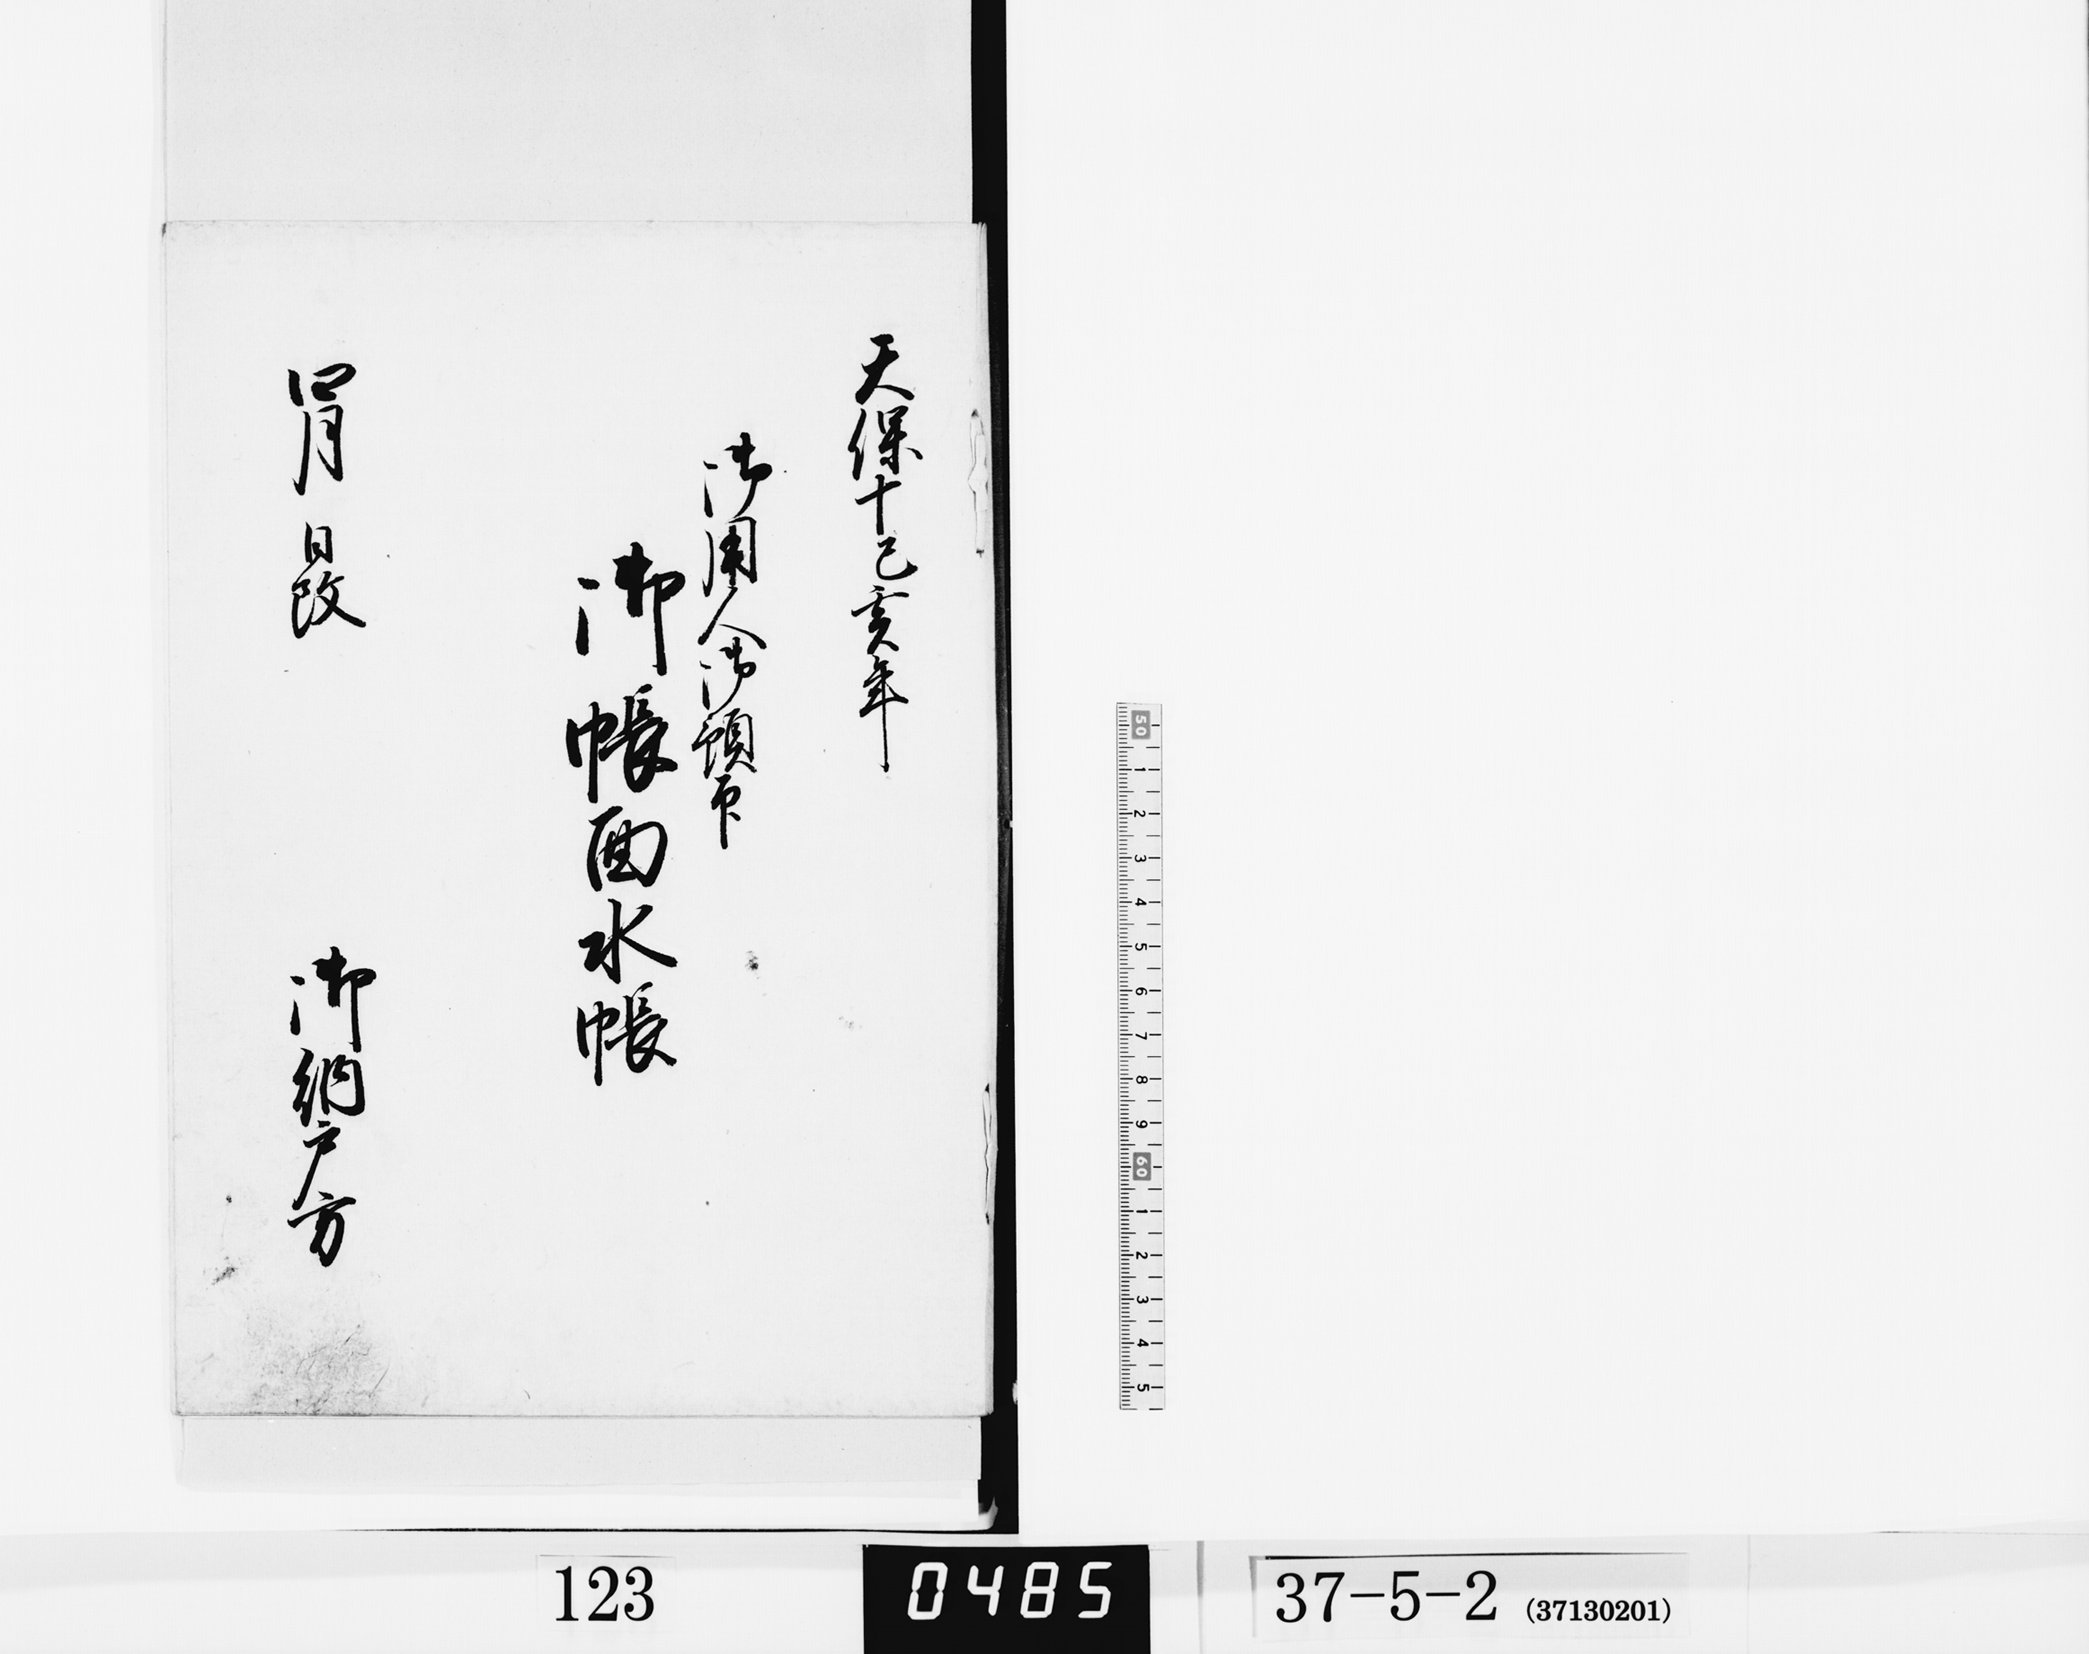 天保十己亥年
御用人御預印
御帳面水帳
四月 日改
御納戸方
50 1 2 3 4 5 6 7 8 9 60 1 2 3 4 5
123
0485
37-5-2 (37130201)